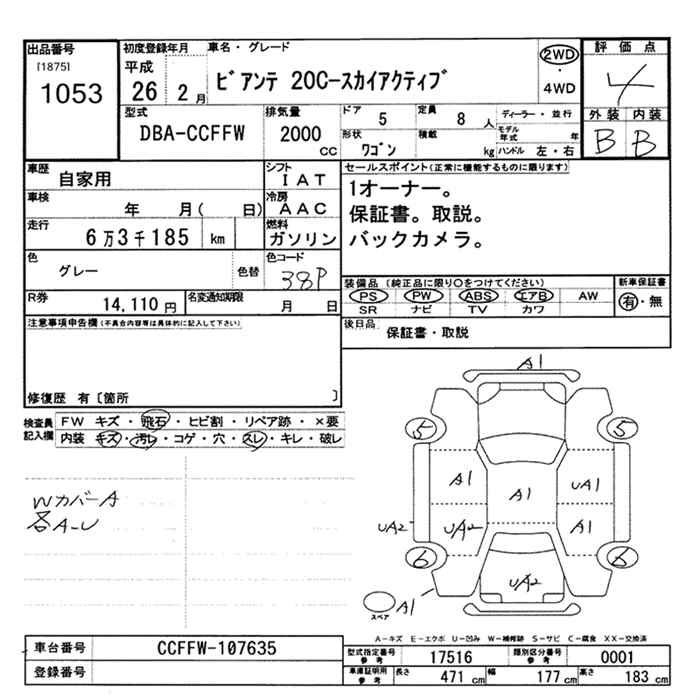 出品番号
[1875]
1053
初度登録年月
平成
26 2 月
車名・グレード
ビアンテ 20C-スカイアクティブ
2WD
・
4WD
評価点
4
外装 内装
B B
型式
DBA-CCFFW
排気量
2000
CC
ドア
5
定員
8 人
ディーラー・並行
形状
ワゴン
積載
kg
モデル年式 年
ハンドル 左・右
車歴
自家用
シフト
IAT
車検
年 月( 日)
冷房
AAC
走行
6万3千185 km
燃料
ガソリン
色
グレー
色替
色コード
38P
R券
14,110 円
名変通知期限
月 日
セールスポイント(正常に機能するものに限ります)
1オーナー。
保証書。取説。
バックカメラ。
装備品 (純正品に限り○をつけてください)
PS PW ABS エアB AW
SR ナビ TV カワ
新車保証書
有・無
後日品
保証書・取説
注意事項申告欄(不具合内容等は具体的に記入して下さい)
修復歴 有〔箇所 〕
検査員
記入欄
FW キズ・飛石・ヒビ割・リペア跡・×要
内装 キズ・汚レ・コゲ・穴・スレ・キレ・破レ
WカバーA
各A-U
A1
5 5
A1 A1 UA1
UA2 UA2 A1
6 6
UA2
A1
スペア
A-キズ E-エクボ U-凹み W-補修跡 S-サビ C-腐食 XX-交換済
車台番号
CCFFW-107635
登録番号
型式指定番号
参考
17516
類別区分番号
参考
0001
車庫証明用
参考
長さ
471 cm
幅
177 cm
高さ
183 cm